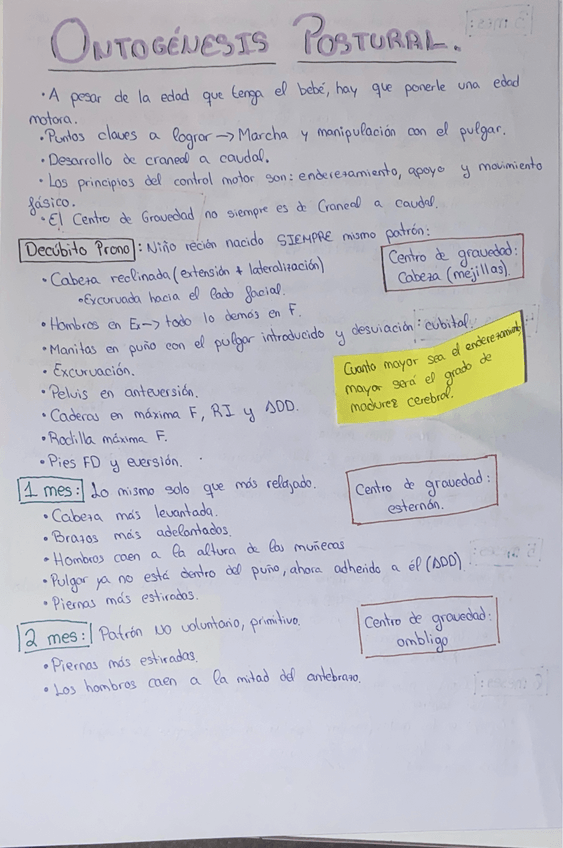 ONTOGÉNESIS POSTURAL.
• A pesar de la edad que tenga el bebé, hay que ponerle una edad
motora.
• Puntos claves a lograr → Marcha y manipulación con el pulgar.
• Desarrollo de craneal a caudal.
• Los principios del control motor son: enderezamiento, apoyo y movimiento
fásico.
• El Centro de Gravedad no siempre es de Craneal a caudal.
Decúbito Prono: Niño recién nacido SIEMPRE mismo patrón:
Centro de gravedad:
Cabeza (mejillas).
• Cabeza reclinada (extensión + lateralización)
• Excurvada hacia el lado facial.
• Hombros en Ex → todo lo demás en F.
• Manitas en puño con el pulgar introducido y desviación cubital.
Cuanto mayor sea el enderezamiento,
mayor será el grado de
madurez cerebral.
• Excurvación.
• Pelvis en anteversión.
• Caderas en máxima F, RI y ADD.
• Rodilla máxima F.
• Pies FD y eversión.
1 mes: Lo mismo solo que más relajado.
Centro de gravedad:
esternón.
• Cabeza más levantada.
• Brazos más adelantados.
• Hombros caen a la altura de las muñecas
• Pulgar ya no está dentro del puño, ahora adherido a él (ADD)
• Piernas más estiradas.
2 mes: Patrón NO voluntario, primitivo.
Centro de gravedad:
ombligo
• Piernas más estiradas.
• Los hombros caen a la mitad del antebrazo.